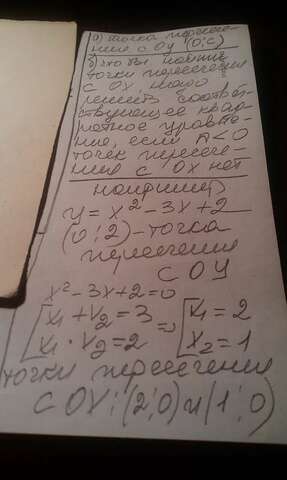 а) точка пересече-
ния с Оу (0;с)
б) чтобы найти
точки пересечения
с ОХ, надо
решить соответ-
ствующее квад-
ратное уравне-
ние, если Д<0
точек пересече-
ния с Ох нет
например
у = х² - 3х + 2
(0;2) - точка
пересечения
с ОУ
х² - 3х + 2 = 0
[х₁ + х₂ = 3 => [х₁ = 2
х₁ · х₂ = 2 х₂ = 1
точки пересечения
с ОХ: (2;0) и (1;0)